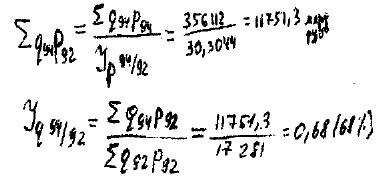 Σq₉₄p₉₂ = Σq₉₄p₉₄ / Jp 94/92 = 356112 / 30,3044 = 11751,3 млрд руб
Jq 94/92 = Σq₉₄p₉₂ / Σq₉₂p₉₂ = 11751,3 / 17 281 = 0,68 (68%)